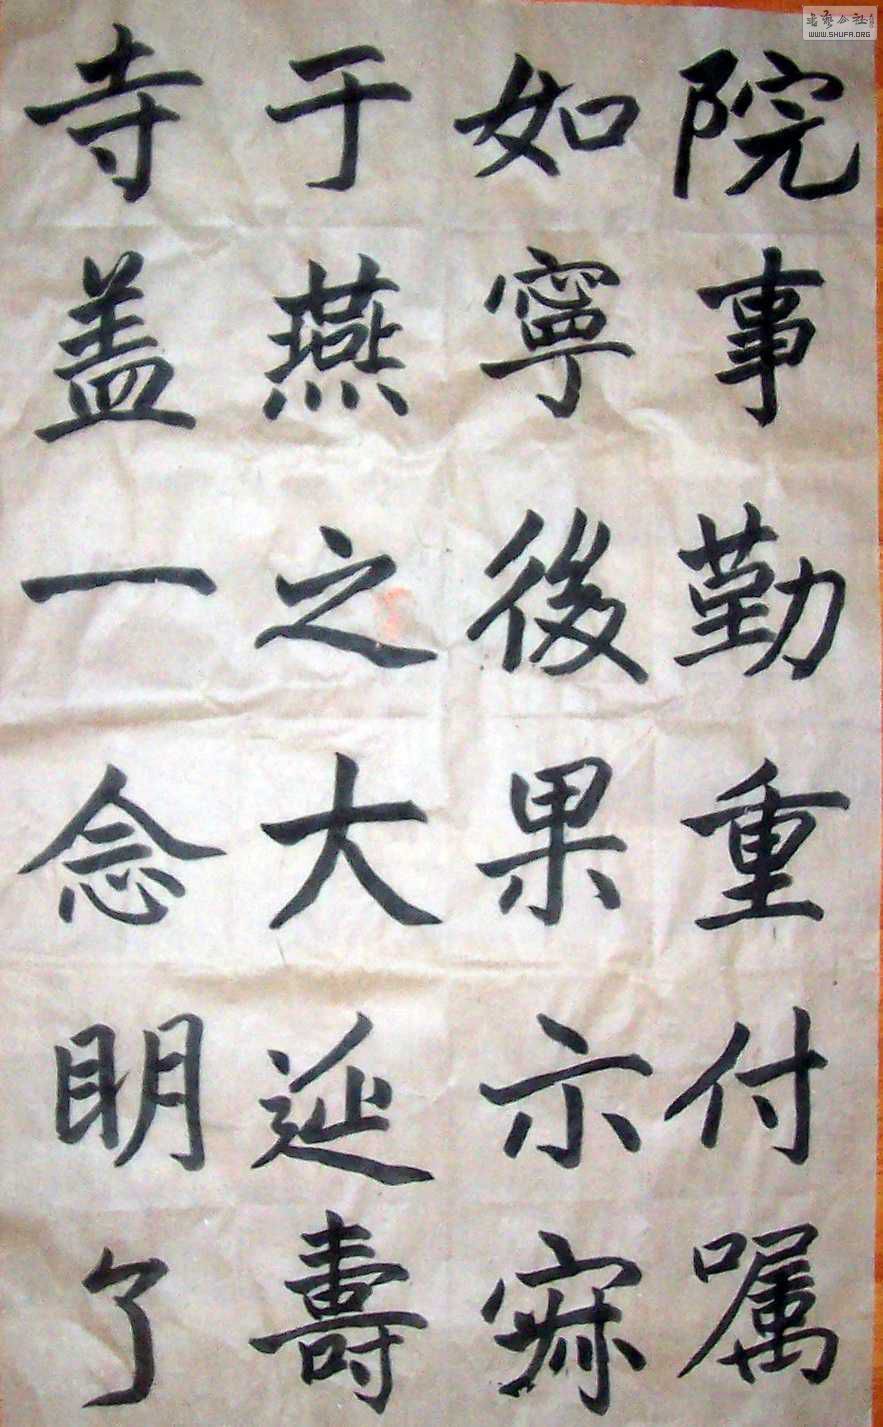 院事勤重付嘱
如寧後果示寂
于燕之大延壽
寺盖一念明了
書藝公社
WWW.SHUFA.ORG